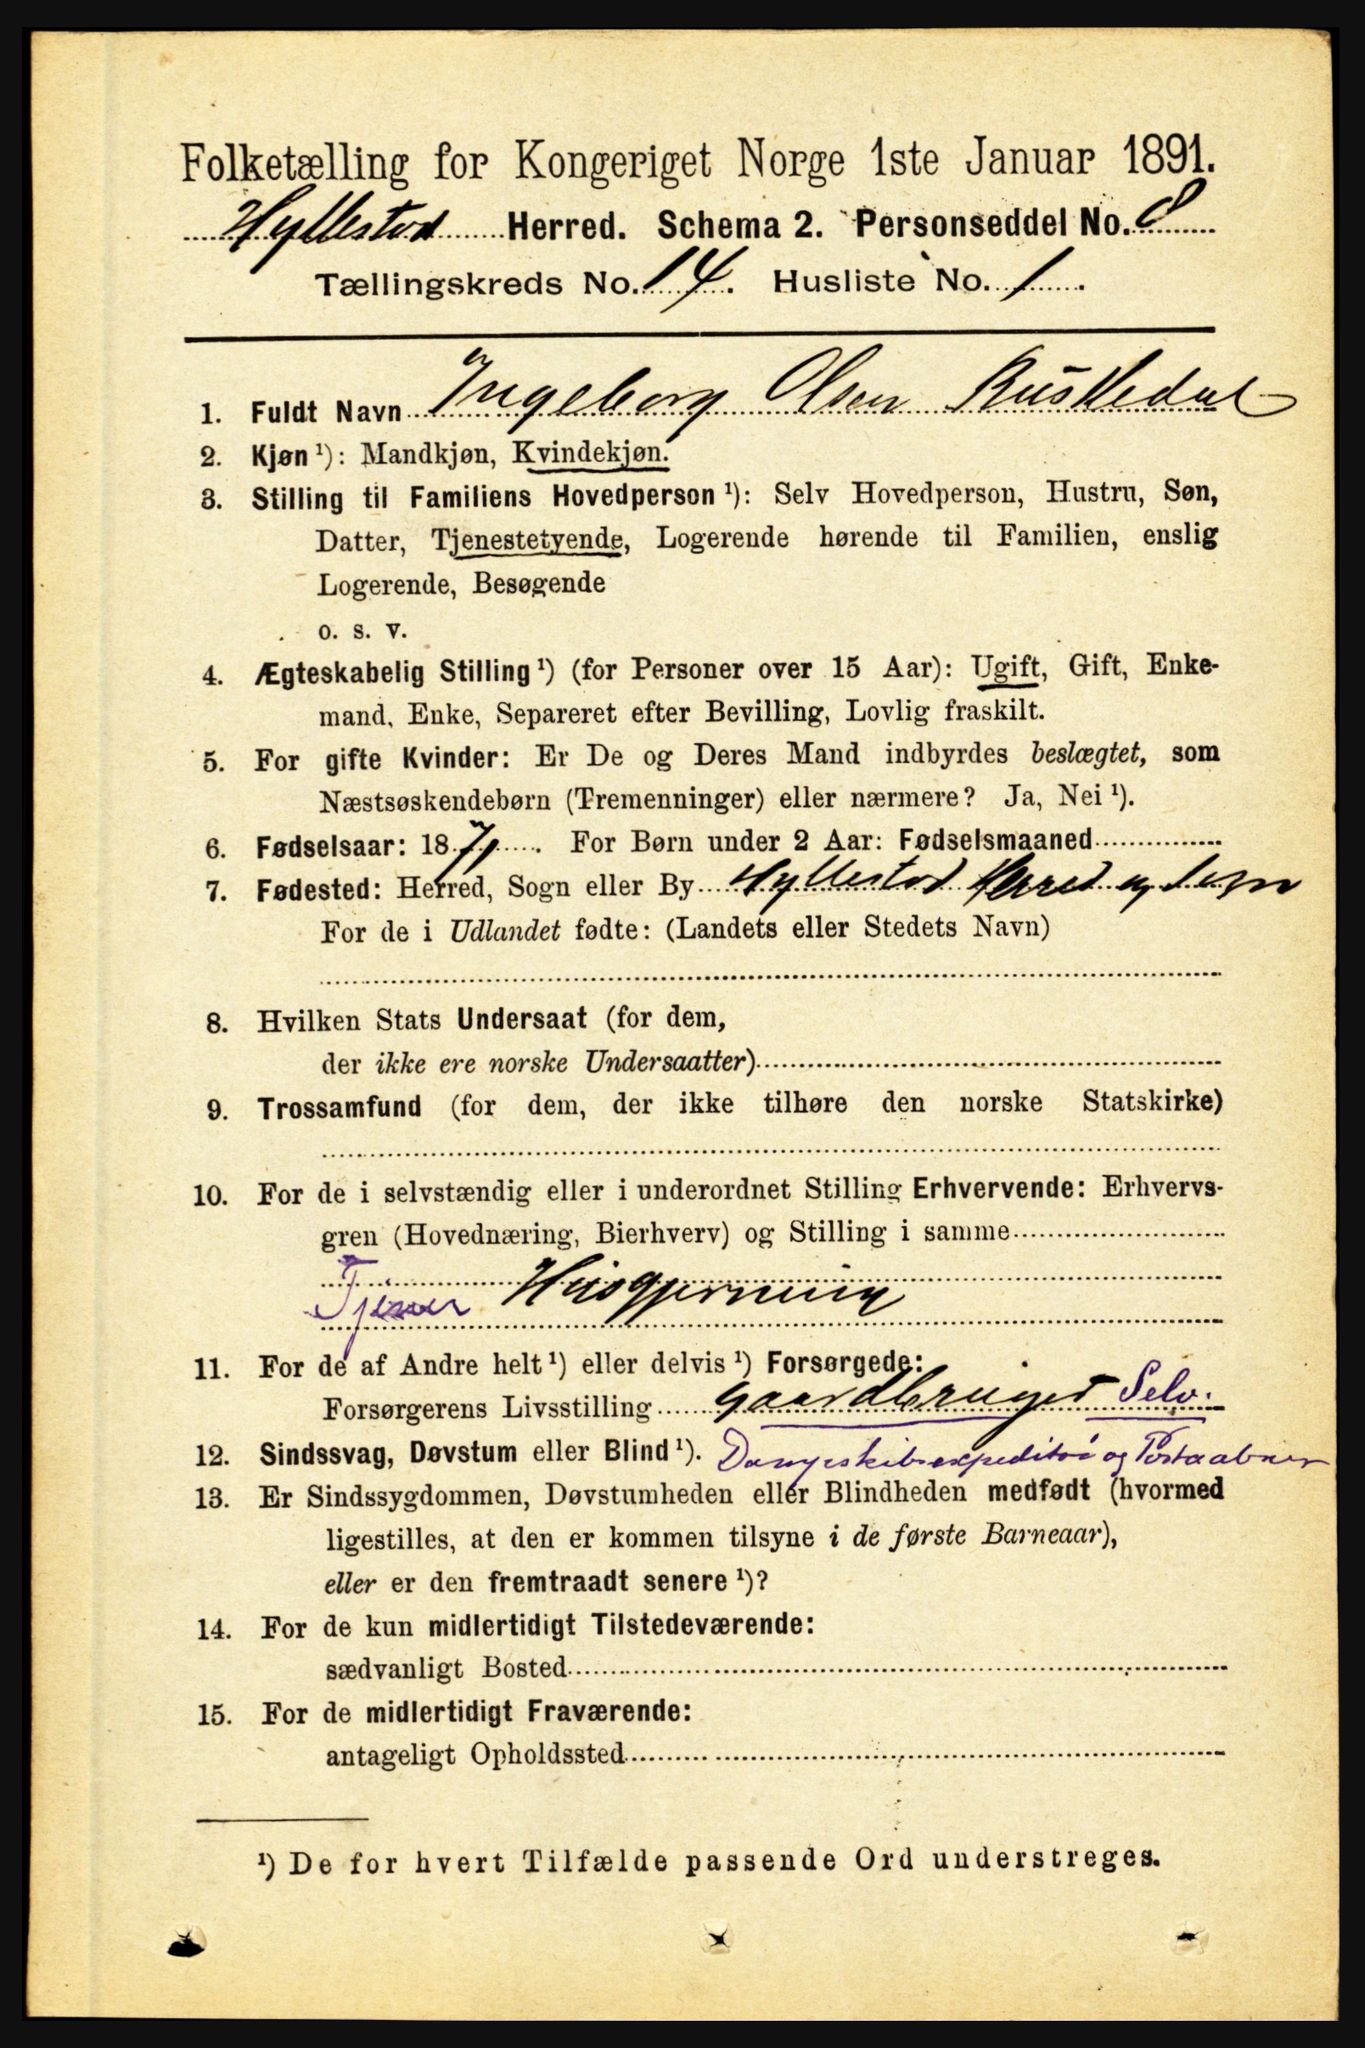 Folketælling for Kongeriget Norge 1ste Januar 1891.
Hyllestad Herred. Schema 2. Personseddel No. 8
Tællingskreds No. 14. Husliste No. 1.
1. Fuldt Navn Ingeborg Olsen Rusledal
2. Kjøn ¹): Mandkjøn, Kvindekjøn.
3. Stilling til Familiens Hovedperson ¹): Selv Hovedperson, Hustru, Søn,
Datter, Tjenestetyende, Logerende hørende til Familien, enslig
Logerende, Besøgende
o. s. v.
4. Ægteskabelig Stilling ¹) (for Personer over 15 Aar): Ugift, Gift, Enke-
mand, Enke, Separeret efter Bevilling, Lovlig fraskilt.
5. For gifte Kvinder: Er De og Deres Mand indbyrdes beslægtet, som
Næstsøskendebørn (Tremenninger) eller nærmere? Ja, Nei ¹).
6. Fødselsaar: 1871. For Børn under 2 Aar: Fødselsmaaned
7. Fødested: Herred, Sogn eller By Hyllestad Herred og Sogn
For de i Udlandet fødte: (Landets eller Stedets Navn)
8. Hvilken Stats Undersaat (for dem,
der ikke ere norske Undersaatter)
9. Trossamfund (for dem, der ikke tilhøre den norske Statskirke)
10. For de i selvstændig eller i underordnet Stilling Erhvervende: Erhvervs-
gren (Hovednæring, Bierhverv) og Stilling i samme
Tjener Husgjerning
11. For de af Andre helt ¹) eller delvis ¹) Forsørgede:
Forsørgerens Livsstilling gaardbruget Selv.
12. Sindssvag, Døvstum eller Blind ¹). Dampskibsexpeditør og Postaabner
13. Er Sindssygdommen, Døvstumheden eller Blindheden medfødt (hvormed
ligestilles, at den er kommen tilsyne i de første Barneaar),
eller er den fremtraadt senere ¹)?
14. For de kun midlertidigt Tilstedeværende:
sædvanligt Bosted
15. For de midlertidigt Fraværende:
antageligt Opholdssted
¹) De for hvert Tilfælde passende Ord understreges.